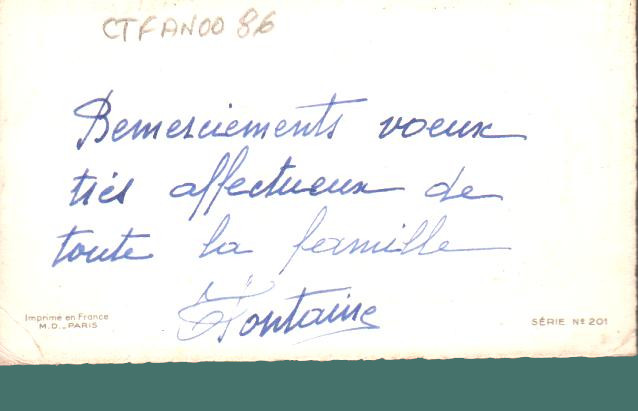 CTFAN00 86
Remerciements voeux
très affectueux de
toute la famille
Fontaine
Imprimé en France
M.D. - PARIS
SÉRIE Nº 201